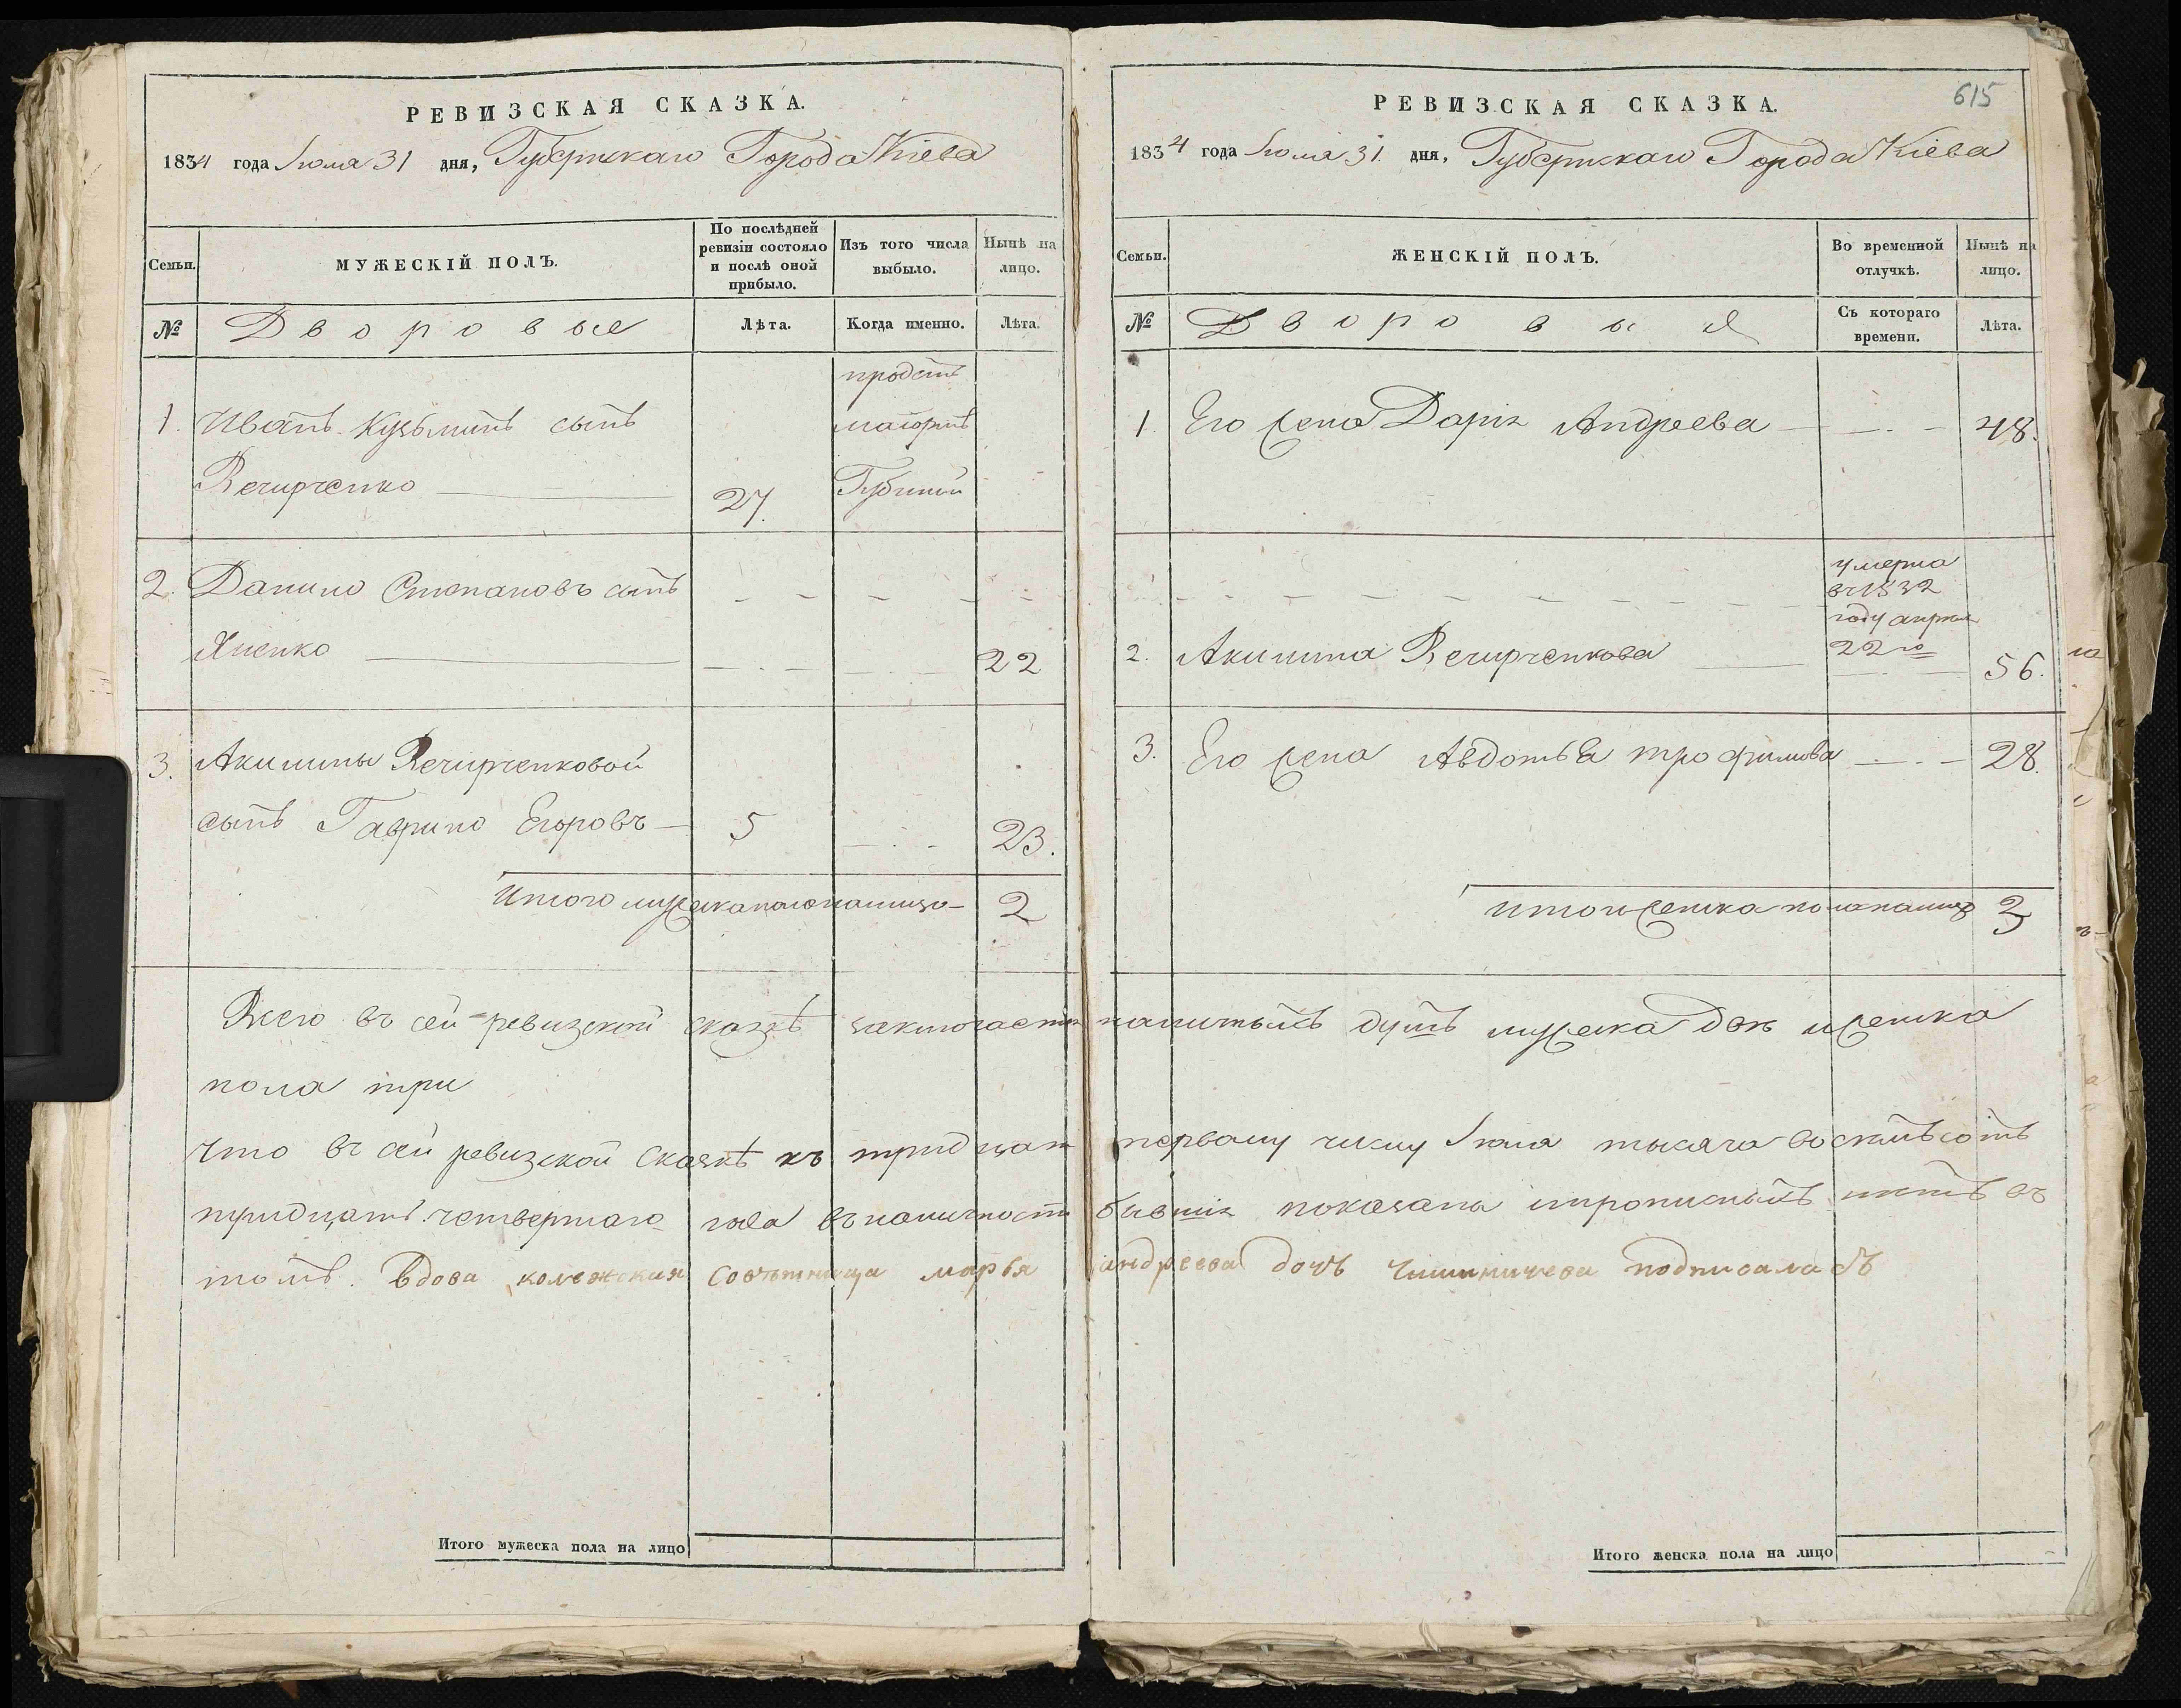 РЕВИЗСКАЯ СКАЗКА.
1834 года Іюля 31 дня, Губернскаго Города Кіева
Семьи.
МУЖЕСКІЙ ПОЛЪ.
По послѣдней
ревизіи состояло
и послѣ оной
прибыло.
Изъ того числа
выбыло.
Нынѣ на
лицо.
№
Дворовые
Лѣта.
Когда именно.
Лѣта.
1. Иванъ Кузьминъ сынъ
Вечирченко
27.
майоршѣ
2. Данило Степановъ сынъ
Яненко
22
3. Акилины Вечирченковой
сынъ Гаврило Егоровъ 5 23.
Итого мужеска пола на лицо 2
Всего въ сей ревизской сказкѣ заключается
пола три
Что въ сей ревизской сказкѣ къ тридцать
тридцать четвертаго года въ наличности
томъ. Вдова колежская Советница марья
Итого мужеска пола на лицо
615
РЕВИЗСКАЯ СКАЗКА.
1834 года Іюля 31. дня, Губернскаго Города Кіева
Семьи.
ЖЕНСКІЙ ПОЛЪ.
Во временной
отлучкѣ.
Нынѣ на
лицо.
№
Дворовыя
Съ котораго
времени.
Лѣта.
1. Его жена Дарія Андреева 48.
умерла
въ 1832
году апреля
22го
2. Акилина Вечирченкова 56.
3. Его жена Авдотья трофимова 28.
Итого женска пола на лицо 3
наличныхъ душъ мужеска две и женска
первому числу Іюля тысяча восемьсотъ
бывшія показаны и прописныхъ нетъ въ
андреева дочь подписалась
Итого женска пола на лицо